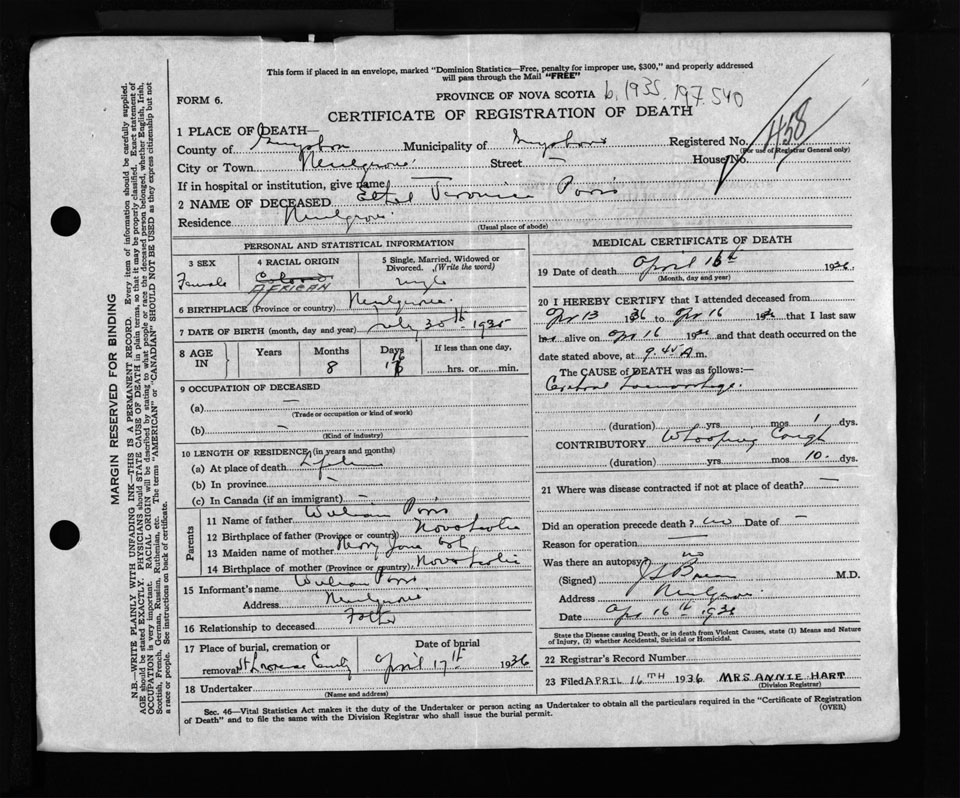 This form if placed in an envelope, marked "Dominion Statistics—Free, penalty for improper use, $300," and properly addressed
will pass through the Mail "FREE"
FORM 6.
PROVINCE OF NOVA SCOTIA b. 1935. 197540
CERTIFICATE OF REGISTRATION OF DEATH
1 PLACE OF DEATH—
County of Guysboro Municipality of Guysboro Registered No. 458
(For use of Registrar General only)
City or Town Street — House No.
If in hospital or institution, give name —
2 NAME OF DECEASED Ethel Veronica
Residence
(Usual place of abode)
PERSONAL AND STATISTICAL INFORMATION
3 SEX 4 RACIAL ORIGIN 5 Single, Married, Widowed or Divorced. (Write the word)
Female Colored AFRICAN single
6 BIRTHPLACE (Province or country)
7 DATE OF BIRTH (month, day and year) July 30th 1935
8 AGE IN Years Months Days If less than one day,
8 16 hrs. or min.
9 OCCUPATION OF DECEASED
(a) —
(Trade or occupation or kind of work)
(b) —
(Kind of industry)
10 LENGTH OF RESIDENCE (in years and months)
(a) At place of death Lifetime
(b) In province —
(c) In Canada (if an immigrant) —
Parents
11 Name of father William
12 Birthplace of father (Province or country) Nova Scotia
13 Maiden name of mother Mary Jane
14 Birthplace of mother (Province or country) Nova Scotia
15 Informant's name William
Address
16 Relationship to deceased Father
17 Place of burial, cremation or removal Date of burial
April 17th 1936
18 Undertaker
(Name and address)
MEDICAL CERTIFICATE OF DEATH
19 Date of death April 16th 1936
(Month, day and year)
20 I HEREBY CERTIFY that I attended deceased from
Apr 13 1936 to Apr 16 1936 that I last saw
her alive on Apr 16 1936 and that death occurred on the
date stated above, at 9.45 A.m.
The CAUSE of DEATH was as follows:—
Cerebral haemorrhage.
(duration) yrs. mos. 1 dys.
CONTRIBUTORY Whooping Cough
(duration) yrs. mos. 10. dys.
21 Where was disease contracted if not at place of death? —
Did an operation precede death? no Date of —
Reason for operation —
Was there an autopsy no
(Signed) M.D.
Address
Date Apr 16th 1936
State the Disease causing Death, or in death from Violent Causes, state (1) Means and Nature
of Injury, (2) whether Accidental, Suicidal or Homicidal.
22 Registrar's Record Number
23 Filed APRIL 16TH 1936 MRS ANNIE HART
(Division Registrar)
Sec. 46—Vital Statistics Act makes it the duty of the Undertaker or person acting as Undertaker to obtain all the particulars required in the "Certificate of Registration
of Death" and to file the same with the Division Registrar who shall issue the burial permit.
(OVER)
MARGIN RESERVED FOR BINDING
N.B.—WRITE PLAINLY WITH UNFADING INK—THIS IS A PERMANENT RECORD. Every item of information should be carefully supplied.
AGE should be stated EXACTLY. PHYSICIANS should STATE CAUSE OF DEATH in plain terms, so that it may be properly classified. Exact statement of
OCCUPATION is very important. RACIAL ORIGIN will be described by stating to what people or race the deceased person belonged, whether English, Irish,
Scottish, French, German, Russian, Ruthenian, etc. The terms "AMERICAN" or "CANADIAN" SHOULD NOT BE USED as they express citizenship but not
a race or people. See instructions on back of certificate.